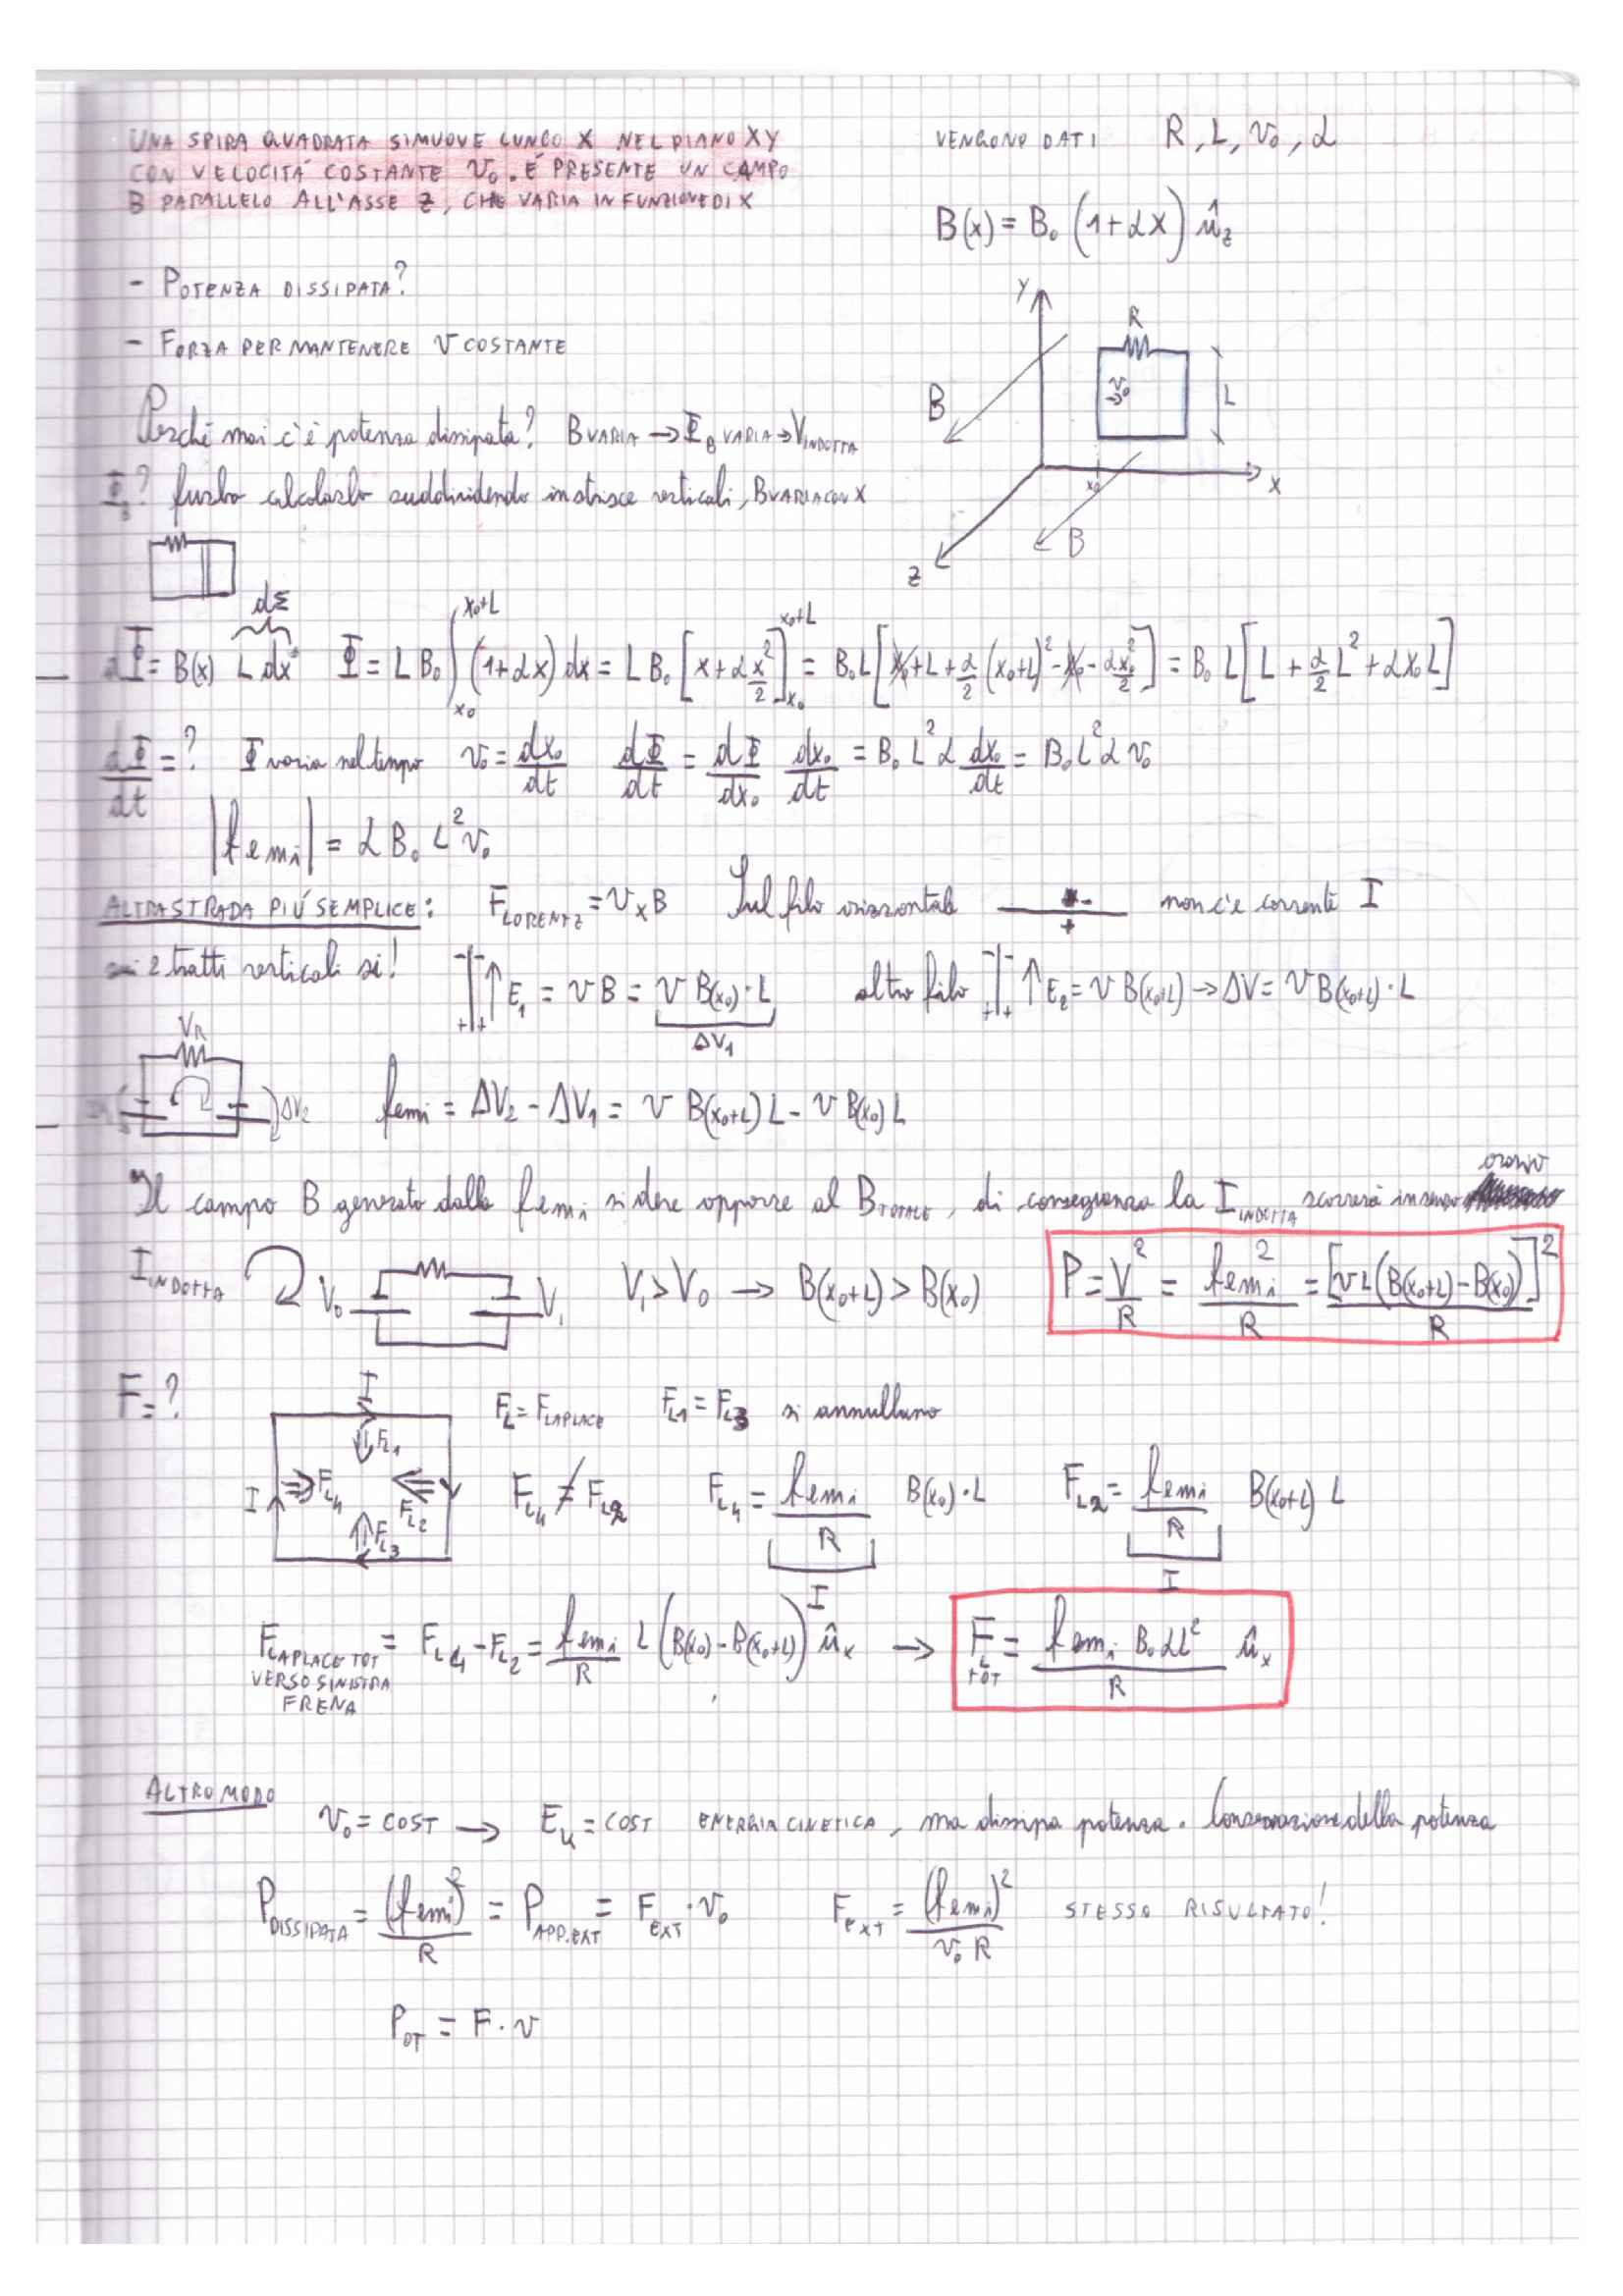 UNA SPIRA QUADRATA SI MUOVE LUNGO X NEL PIANO XY
CON VELOCITÁ COSTANTE V₀. É PRESENTE UN CAMPO
B PARALLELO ALL'ASSE Z, CHE VARIA IN FUNZIONE DI X
VENGONO DATI R, L, V₀, α
B(x) = B₀ (1+αx) û_z
- POTENZA DISSIPATA?
- FORZA PER MANTENERE V COSTANTE
Y
R
V₀
L
B
x₀
X
B
Z
Perché mai c'è potenza dissipata? B VARIA → Φ_B VARIA → V_INDOTTA
Φ_B? furbo calcolarlo suddividendo in strisce verticali, B VARIA CON X
dΣ
dΦ = B(x) L dx Φ = L B₀ ∫_{x₀}^{x₀+L} (1+αx) dx = L B₀ [x + α x²/2]_{x₀}^{x₀+L} = B₀L [x₀ + L + α/2 (x₀+L)² - x₀ - αx₀²/2] = B₀ L [L + α/2 L² + αx₀L]
dΦ/dt = ? Φ varia nel tempo v₀ = dx₀/dt dΦ/dt = dΦ/dx₀ dx₀/dt = B₀ L² α dx₀/dt = B₀L²αv₀
|fem_i| = αB₀L²v₀
ALTRA STRADA PIÚ SEMPLICE: F_LORENTZ = V×B Sul filo orizzontale - + non c'è corrente I
sui 2 tratti verticali si! - - + + ↑ E₁ = vB = v B(x₀)·L ΔV₁ altro filo - - + + ↑ E₂ = v B(x₀+L) → ΔV = v B(x₀+L)·L
V_R
ΔV₂
fem_i = ΔV₂ - ΔV₁ = v B(x₀+L) L - v B(x₀) L
Il campo B generato dalla fem_i si deve opporre al B_TOTALE, di conseguenza la I_INDOTTA scorrerà in senso orario
I_INDOTTA V₀ V₁ V₁ > V₀ → B(x₀+L) > B(x₀) P = V²/R = fem_i²/R = [vL(B(x₀+L) - B(x₀))]²/R
F = ?
I
F_L1
I
F_L4
F_L2
F_L3
F_L = F_LAPLACE F_L1 = F_L3 si annullano
F_L4 ≠ F_L2 F_L4 = fem_i/R B(x₀)·L F_L2 = fem_i/R B(x₀+L) L
I I
F_LAPLACE TOT = F_L4 - F_L2 = fem_i/R L (B(x₀) - B(x₀+L)) û_x → F_L TOT = fem_i B₀αL²/R û_x
VERSO SINISTRA
FRENA
ALTRO MODO
V₀ = COST → E_K = COST ENERGIA CINETICA, ma dissipa potenza. Conservazione della potenza
P_DISSIPATA = (fem_i)²/R = P_APP.EXT = F_EXT · v₀ F_EXT = (fem_i)²/v₀R STESSO RISULTATO!
P_OT = F · v